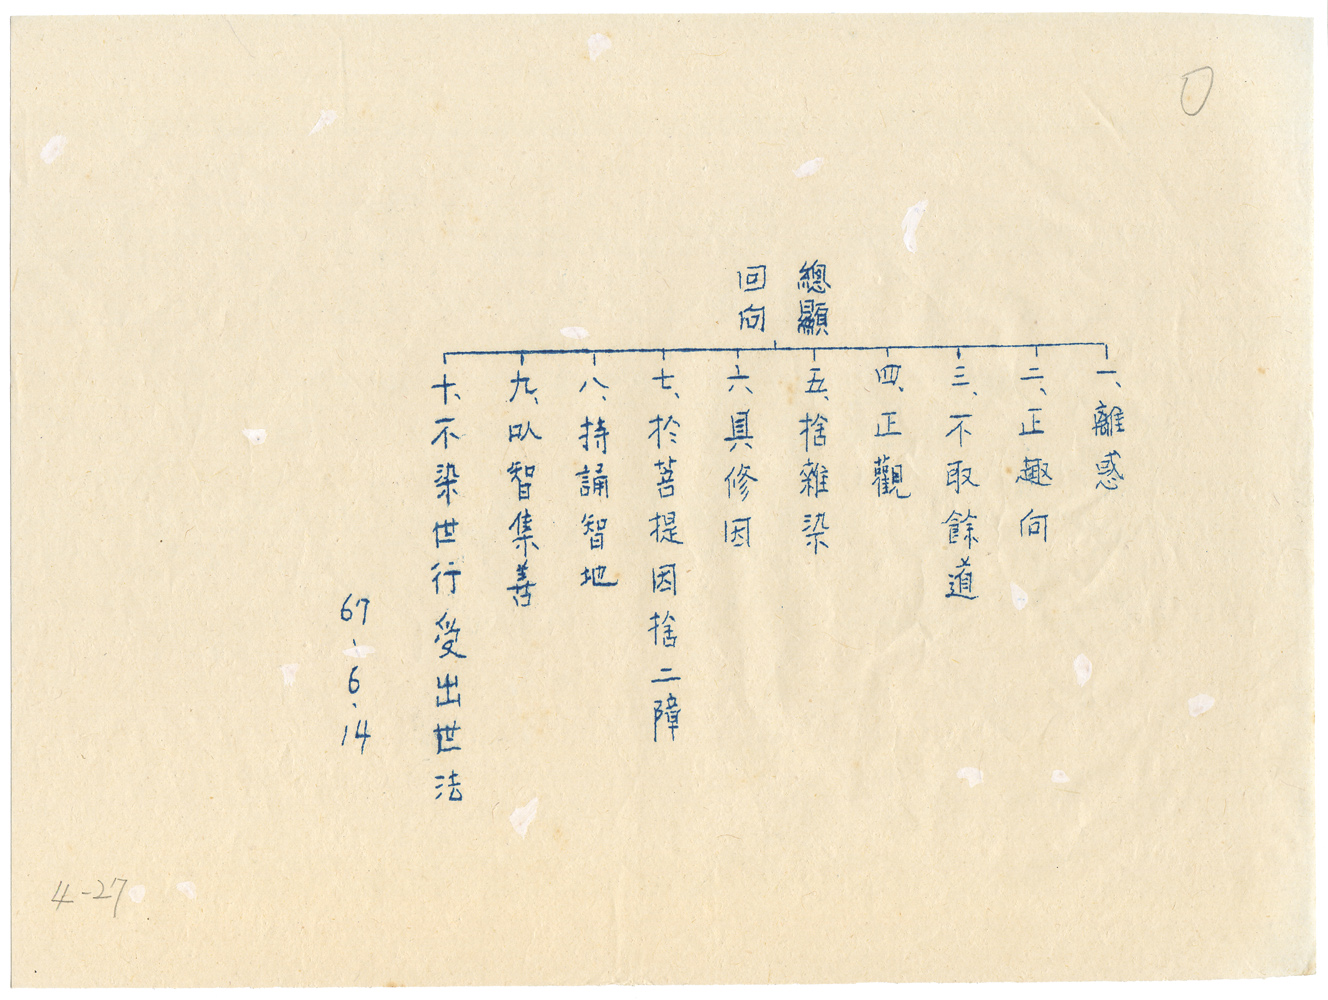 總顯
回向
一、離惑
二、正趣向
三、不取餘道
四、正觀
五、捨雜染
六、具修因
七、於菩提因捨二障
八、持誦智地
九、以智集善
十、不染世行受出世法
67、6、14
4-27